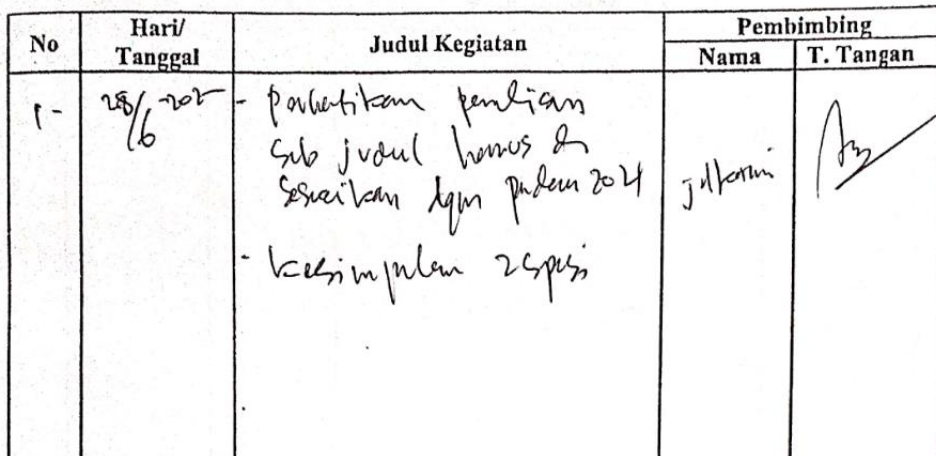 No
Hari/
Tanggal
Judul Kegiatan
Pembimbing
Nama
T. Tangan
1-
28/6
- Perhatikan penulisan
Sub judul harus di
Sesuaikan dgn 2024
- Kesimpulan 2 spasi